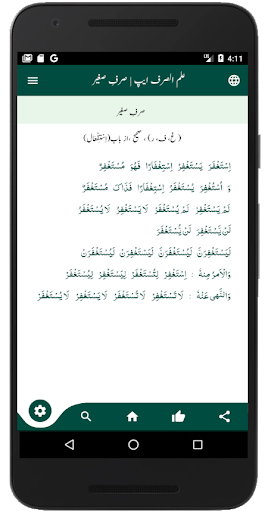 4:11
علم الصرف ایپ | صرف صغیر
صرف صغیر
(غ، ف، ر) ، صحیح ، از باب (اِسْتِفْعَال)
اِسْتَغْفَرَ يَسْتَغْفِرُ اِسْتِغْفَارًا فَهُوَ مُسْتَغْفِرٌ
وَ اُسْتُغْفِرَ يُسْتَغْفَرُ اِسْتِغْفَارًا فَذَاكَ مُسْتَغْفَرٌ
لَمْ يَسْتَغْفِرْ لَمْ يُسْتَغْفَرْ لَا يَسْتَغْفِرُ لَا يُسْتَغْفَرُ
لَنْ يَّسْتَغْفِرَ لَنْ يُّسْتَغْفَرَ
لَيَسْتَغْفِرَنَّ لَيُسْتَغْفَرَنَّ لَيَسْتَغْفِرَنْ لَيُسْتَغْفَرَنْ
وَالْاَمْرُ مِنْهُ : اِسْتَغْفِرْ لِتُسْتَغْفَرْ لِيَسْتَغْفِرْ لِيُسْتَغْفَرْ
وَالنَّهِى عَنْهُ : لَا تَسْتَغْفِرْ لَا تُسْتَغْفَرْ لَا يَسْتَغْفِرْ لَا يُسْتَغْفَرْ